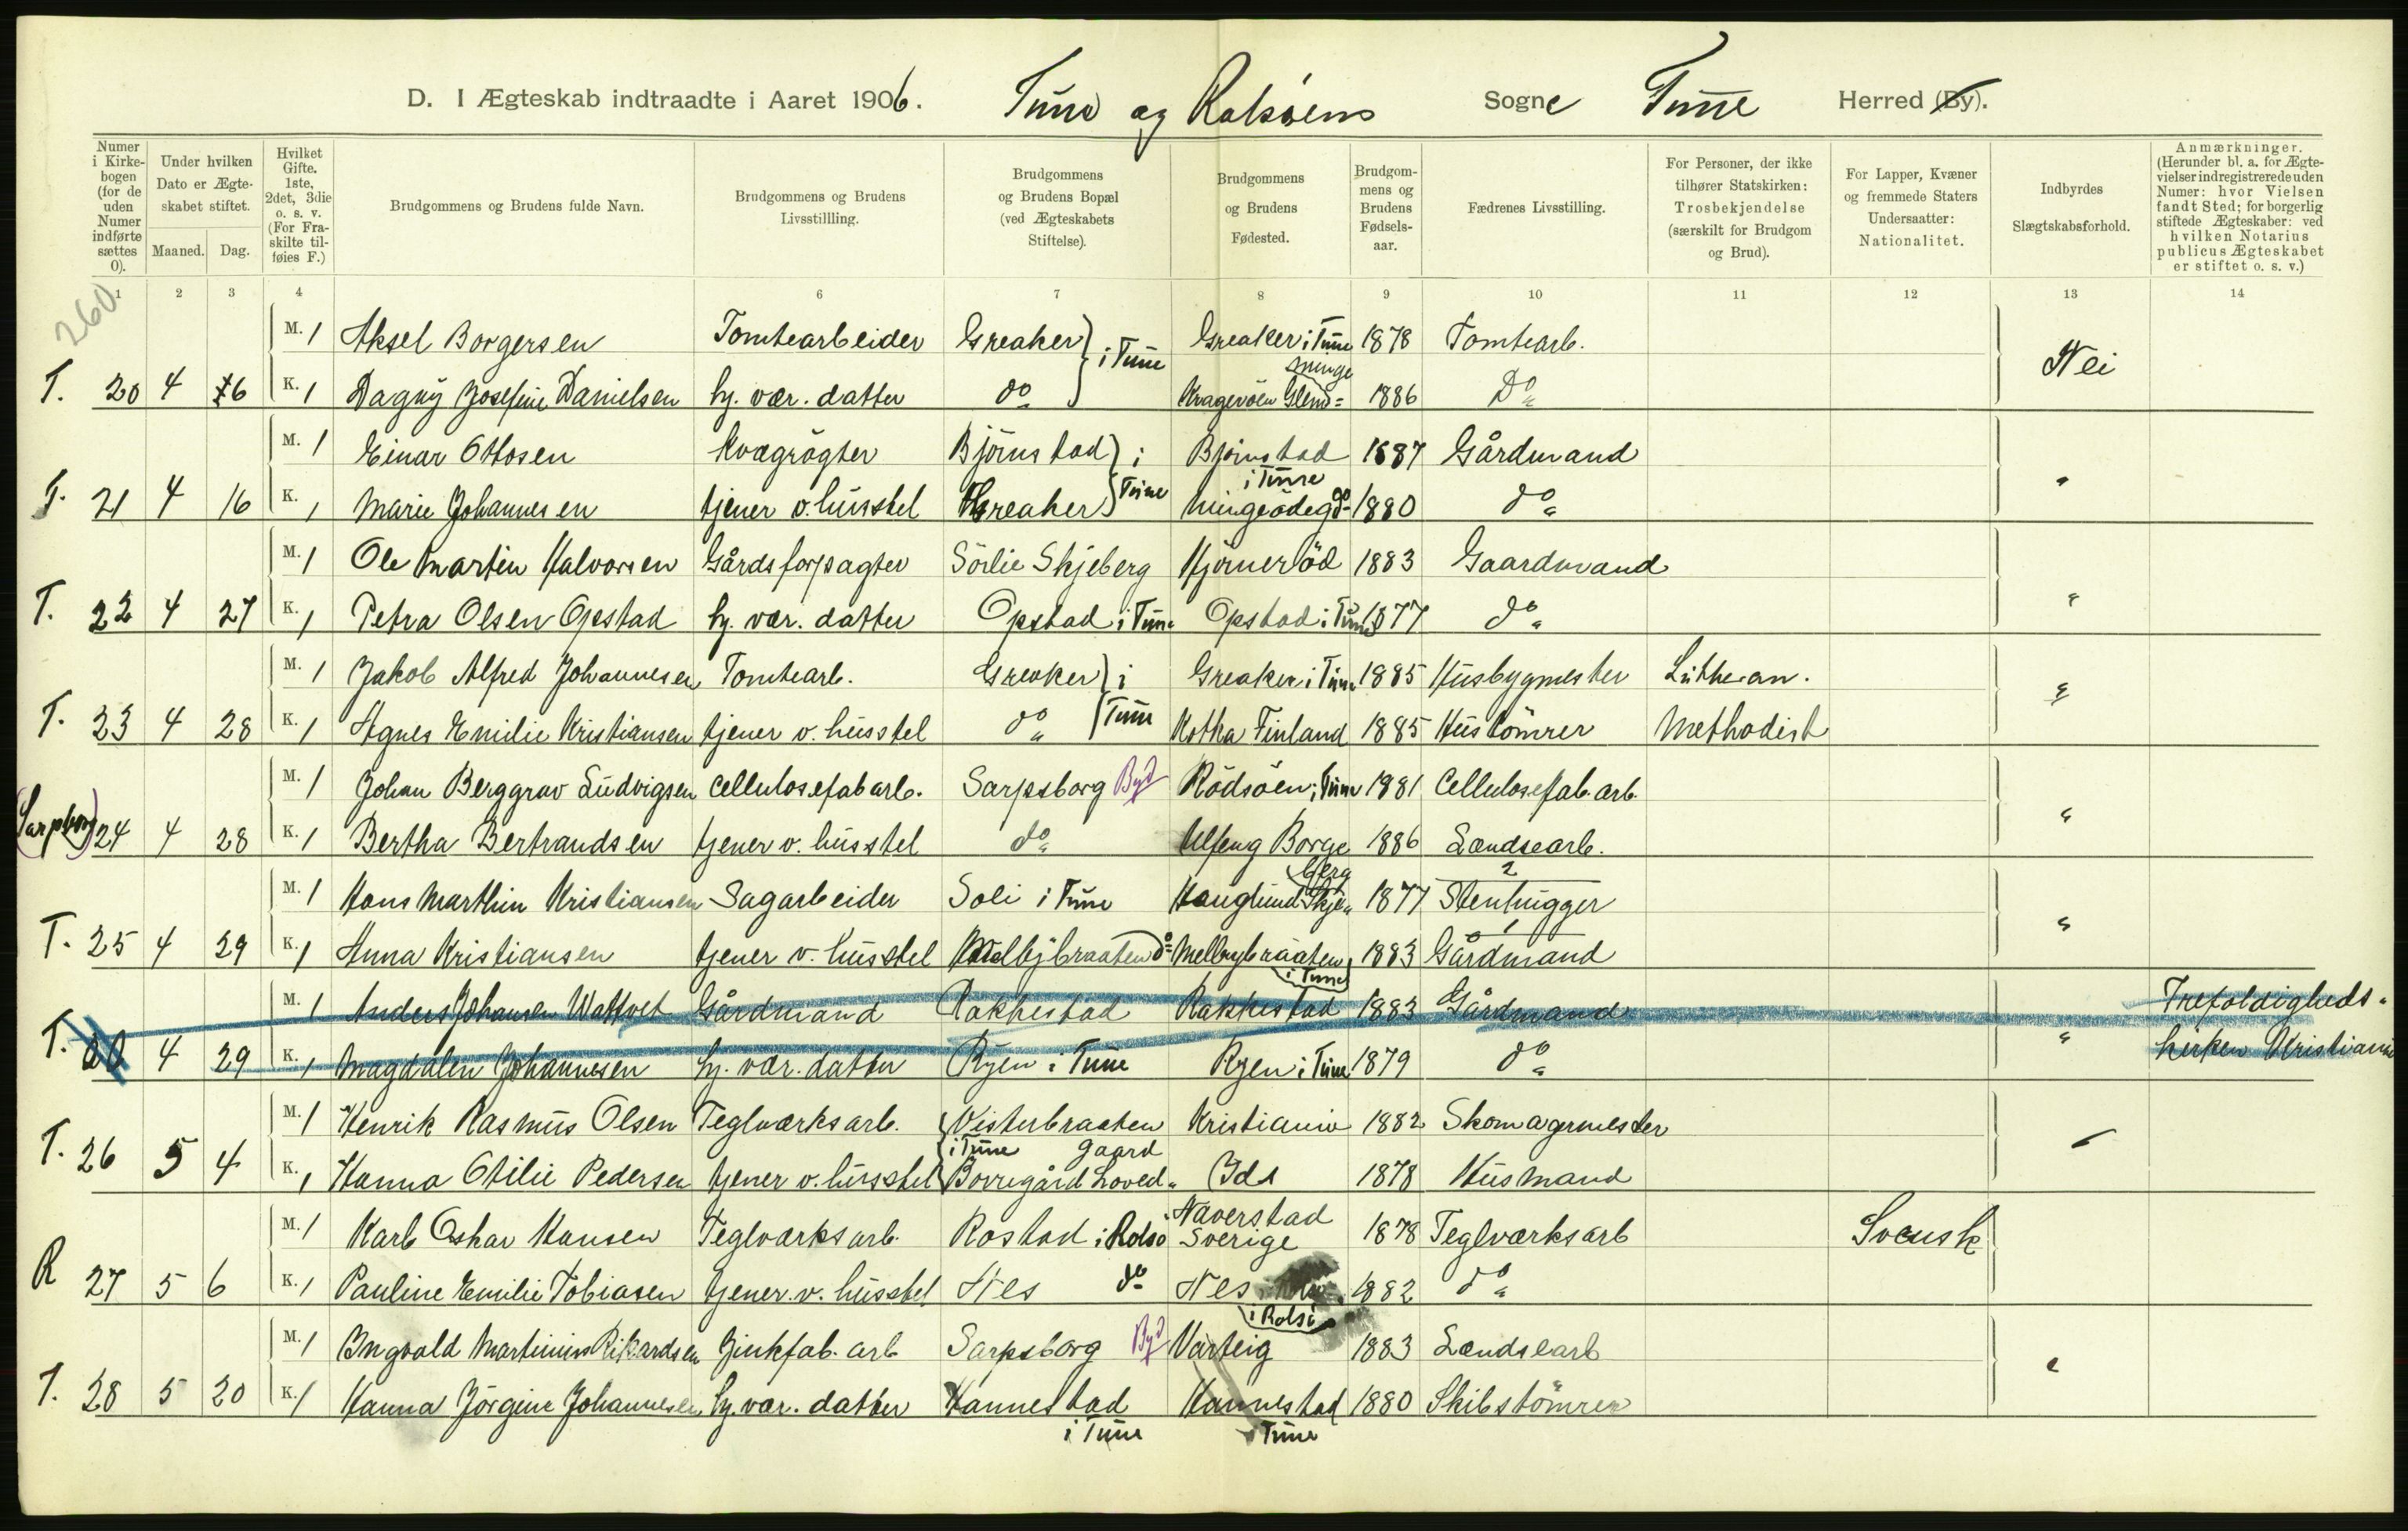 D. I Ægteskab indtraadte i Aaret 1906. Tune og Rolsöens Sogne Tune Herred (By).
Numer i Kirkebogen (for de uden Numer indførte sættes 0).
Under hvilken Dato er Ægteskabet stiftet. Maaned. Dag.
Hvilket Gifte. 1ste, 2det, 3die o. s. v. (For Fraskilte tilføies F.)
Brudgommens og Brudens fulde Navn.
Brudgommens og Brudens Livsstillling.
Brudgommens og Brudens Bopæl (ved Ægteskabets Stiftelse).
Brudgommens og Brudens Fødested.
Brudgommens og Brudens Fødselsaar.
Fædrenes Livsstilling.
For Personer, der ikke tilhører Statskirken: Trosbekjendelse (særskilt for Brudgom og Brud).
For Lapper, Kvæner og fremmede Staters Undersaatter: Nationalitet.
Indbyrdes Slægtskabsforhold.
Anmærkninger. (Herunder bl. a. for Ægtevielser indregistrerede uden Numer: hvor Vielsen fandt Sted; for borgerlig stiftede Ægteskaber: ved hvilken Notarius publicus Ægteskabet er stiftet o. s. v.)
1 2 3 4 6 7 8 9 10 11 12 13 14
260
M. 1 Aksel Borgersen Tomtearbeider Greaker } i Tune Greaker i Tune 1878 Tomtearb. Nei
T. 20 4 16 K. 1 Dagny Josefine Danielsen hj. vær. datter do Kragerøen Glem= minge 1886 Do
M. 1 Einar Ottosen Kvægrögter Björnstad } i Tune Björnstad i Tune 1887 Gårdmand
T. 21 4 16 K. 1 Marie Johannesen tjener v. husstel Greaker Mingeödegd do 1880 do "
M. 1 Ole Martin Halvorsen Gårdsforpagter Sörlie Skjeberg Hjörneröd 1883 Gaardmand
T. 22 4 27 K. 1 Petra Olsen Opstad hj. vær. datter Opstad i Tune Opstad i Tune 1877 do "
M. 1 Jakob Alfred Johannesen Tomtearb. Greaker } i Tune Greaker i Tune 1885 Husbygmester Lutheran.
T. 23 4 28 K. 1 Agnes Emilie Kristiansen tjener v. husstel do Kotka Finland 1885 Hustömrer Methodist "
M. 1 Johan Berggrav Ludvigsen Cellulosefabarb. Sarpsborg By Rödsöen i Tune 1881 Cellulosefab. arb.
(Sarpsborg) 24 4 28 K. 1 Bertha Bertrandsen tjener v. husstel do Ulfeng Borge 1886 Landsearb. "
M. 1 Hans Marthin Kristiansen Sagarbeider Soli i Tune Hauglund Skje= berg 1877 2 Stenhugger
T. 25 4 29 K. 1 Anna Kristiansen tjener v. husstel Melbybraaten do Melbybraaten i Tune 1883 1 Gårdmand "
M. 1 Anders Johansen Wattvet Gårdmand Rakkestad Rakkestad 1883 Gårdmand Trefoldigheds-
T. 4 29 K. 1 Magdalen Johannesen hj. vær. datter Ryen i Tune Ryen i Tune 1879 do " kirken Kristiania
M. 1 Henrik Rasmus Olsen Teglværksarb. Visterbraaten i Tune Kristiania 1882 Skomagermester
T. 26 5 4 K. 1 Hanna Otilie Pedersen tjener v. husstel Borregård Hoved= gaard Ids 1878 Husmand
M. 1 Karl Oskar Hansen Teglværksarb. Rostad i Rolsö Näverstad Sverige 1878 Teglværksarb Svensk
R 27 5 6 K. 1 Pauline Emilie Tobiasen tjener v. husstel Nes do Nes i Rolsö 1882 do
M. 1 Ingvald Martinius Rikardsen Zinkfab. arb Sarpsborg By Varteig 1883 Landsearb
T. 28 5 20 K. 1 Hanna Jörgine Johannesen hj. vær. datter Hannestad i Tune Hannestad i Tune 1880 Skibstömrer "